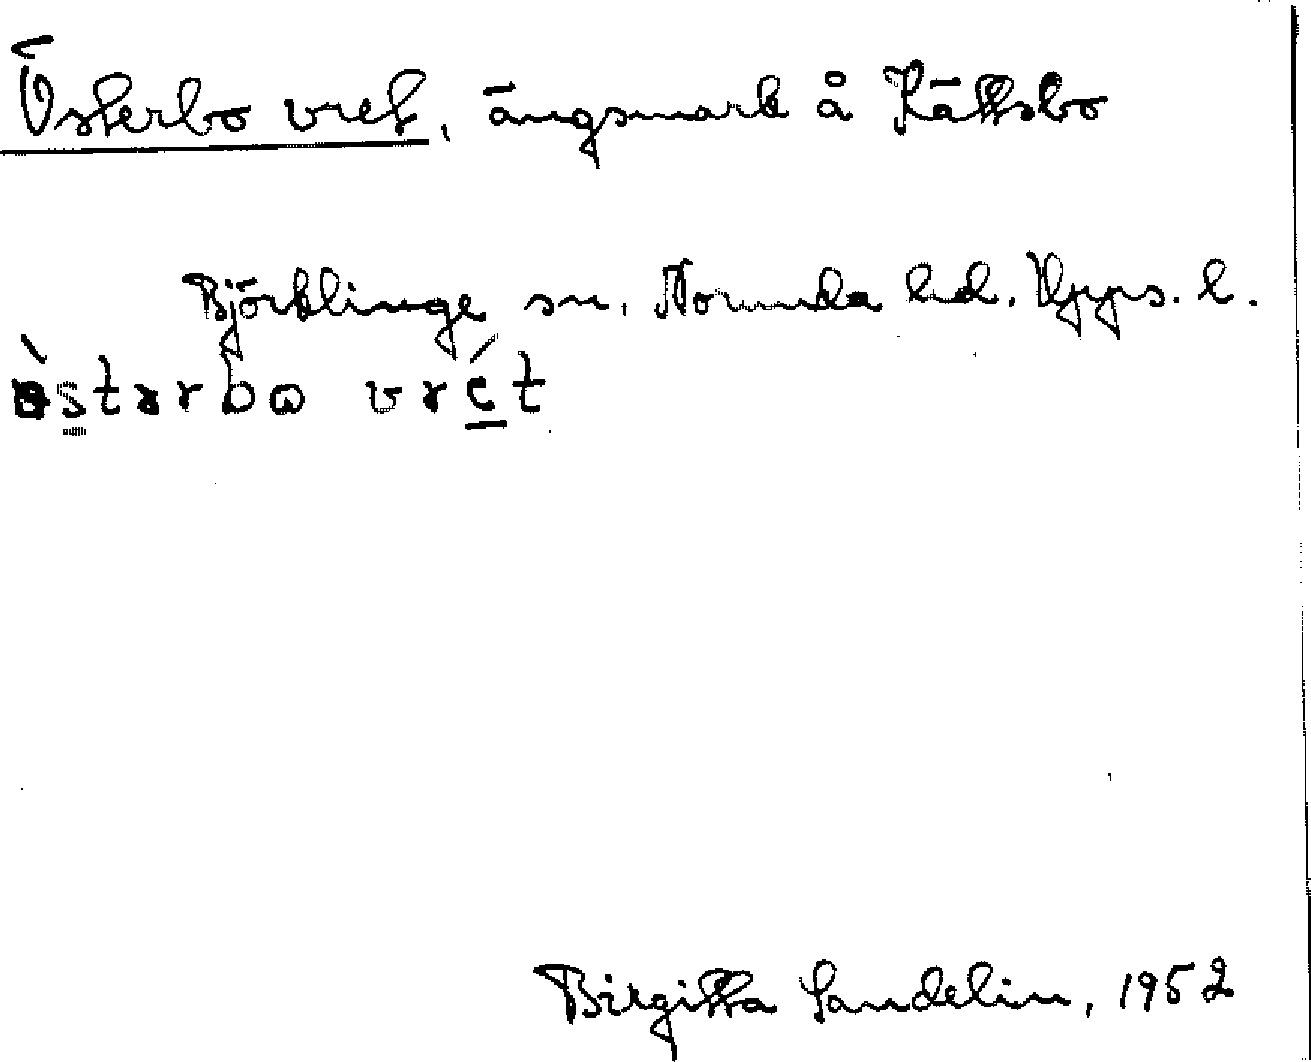 Österbo vret, ängsmark å Kättsbo
Björklinge sn. Norunda hd. Upps. l.
Birgitta Sandelin, 1952